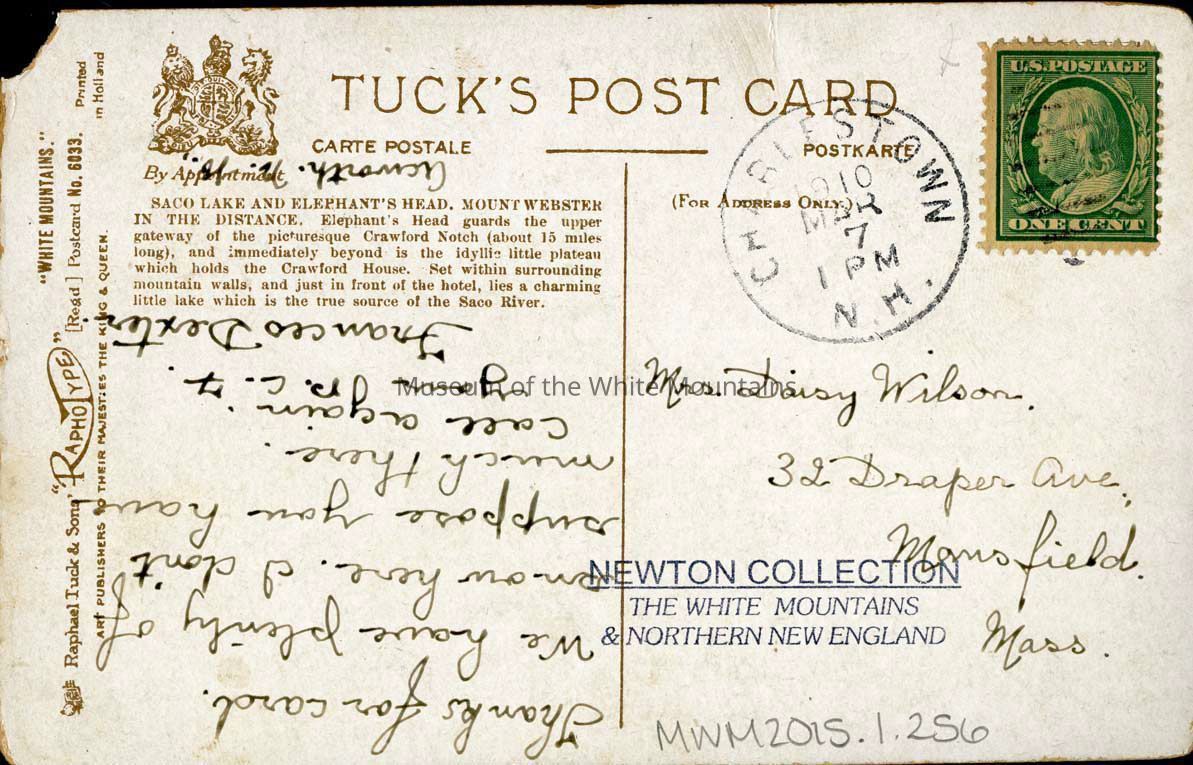 TUCK'S POST CARD
CARTE POSTALE
POSTKARTE
By Appointment
(For Address Only.)
Acworth. N.H.
SACO LAKE AND ELEPHANT'S HEAD. MOUNT WEBSTER
IN THE DISTANCE. Elephant's Head guards the upper
gateway of the picturesque Crawford Notch (about 15 miles
long), and immediately beyond is the idyllic little plateau
which holds the Crawford House. Set within surrounding
mountain walls, and just in front of the hotel, lies a charming
little lake which is the true source of the Saco River.
Printed
in Holland
"WHITE MOUNTAINS."
[Read] Postcard No. 6033.
"RAPHOTYPE"
Raphael Tuck & Sons'
ART PUBLISHERS TO THEIR MAJESTIES THE KING & QUEEN.
U.S. POSTAGE
ONE CENT
CHARLESTOWN
1910
MAR
7
1 PM
N.H.
Thanks for card.
We have plenty of
snow here. I don't
suppose you have
much there.
Call again.
Frances Dexter
Mrs. Daisy Wilson.
32 Draper Ave,
Mansfield.
Mass.
Museum of the White Mountains
NEWTON COLLECTION
THE WHITE MOUNTAINS
& NORTHERN NEW ENGLAND
MWM2015.1.256